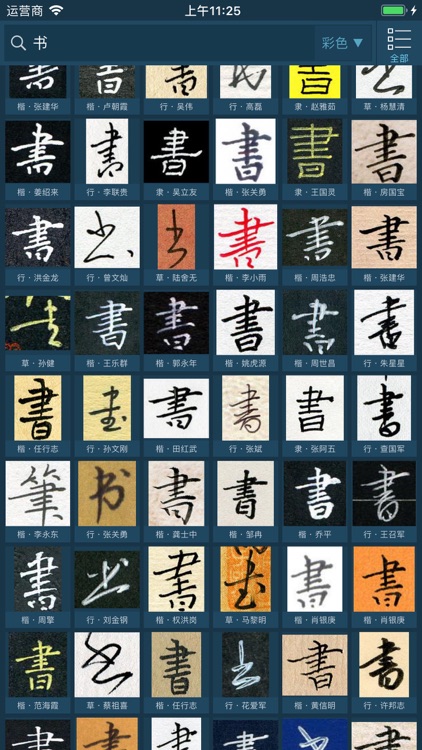 运营商 上午11:25
书 彩色 ▼ 全部
楷·张建华 楷·卢朝霞 行·吴伟 行·高磊 隶·赵雅茹 草·杨慧清
書 書 書 書 書 書
楷·姜绍来 行·李联贵 隶·吴立友 楷·张关勇 隶·王国灵 楷·房国宝
書 书 书 書 書 書
行·洪金龙 行·曾文灿 草·陆舍无 楷·李小雨 楷·周浩忠 楷·张建华
书 書 書 書 書 書
草·孙健 楷·王乐群 楷·郭永年 楷·姚虎源 楷·周世昌 行·朱星星
書 書 書 書 書 書
楷·任行志 行·孙文刚 楷·田红武 行·张斌 隶·张阿五 行·查国军
筆 书 書 書 書 書
楷·李永东 行·张关勇 楷·龚士中 楷·邹冉 楷·乔平 行·王召军
書 书 書 書 書 書
楷·周擎 行·刘金钢 楷·权洪岗 草·马黎明 楷·肖银庚 楷·肖银庚
書 书 書 书 書 書
楷·范海霞 草·蔡祖喜 楷·任行志 行·花爱军 楷·黄信明 行·许邦志